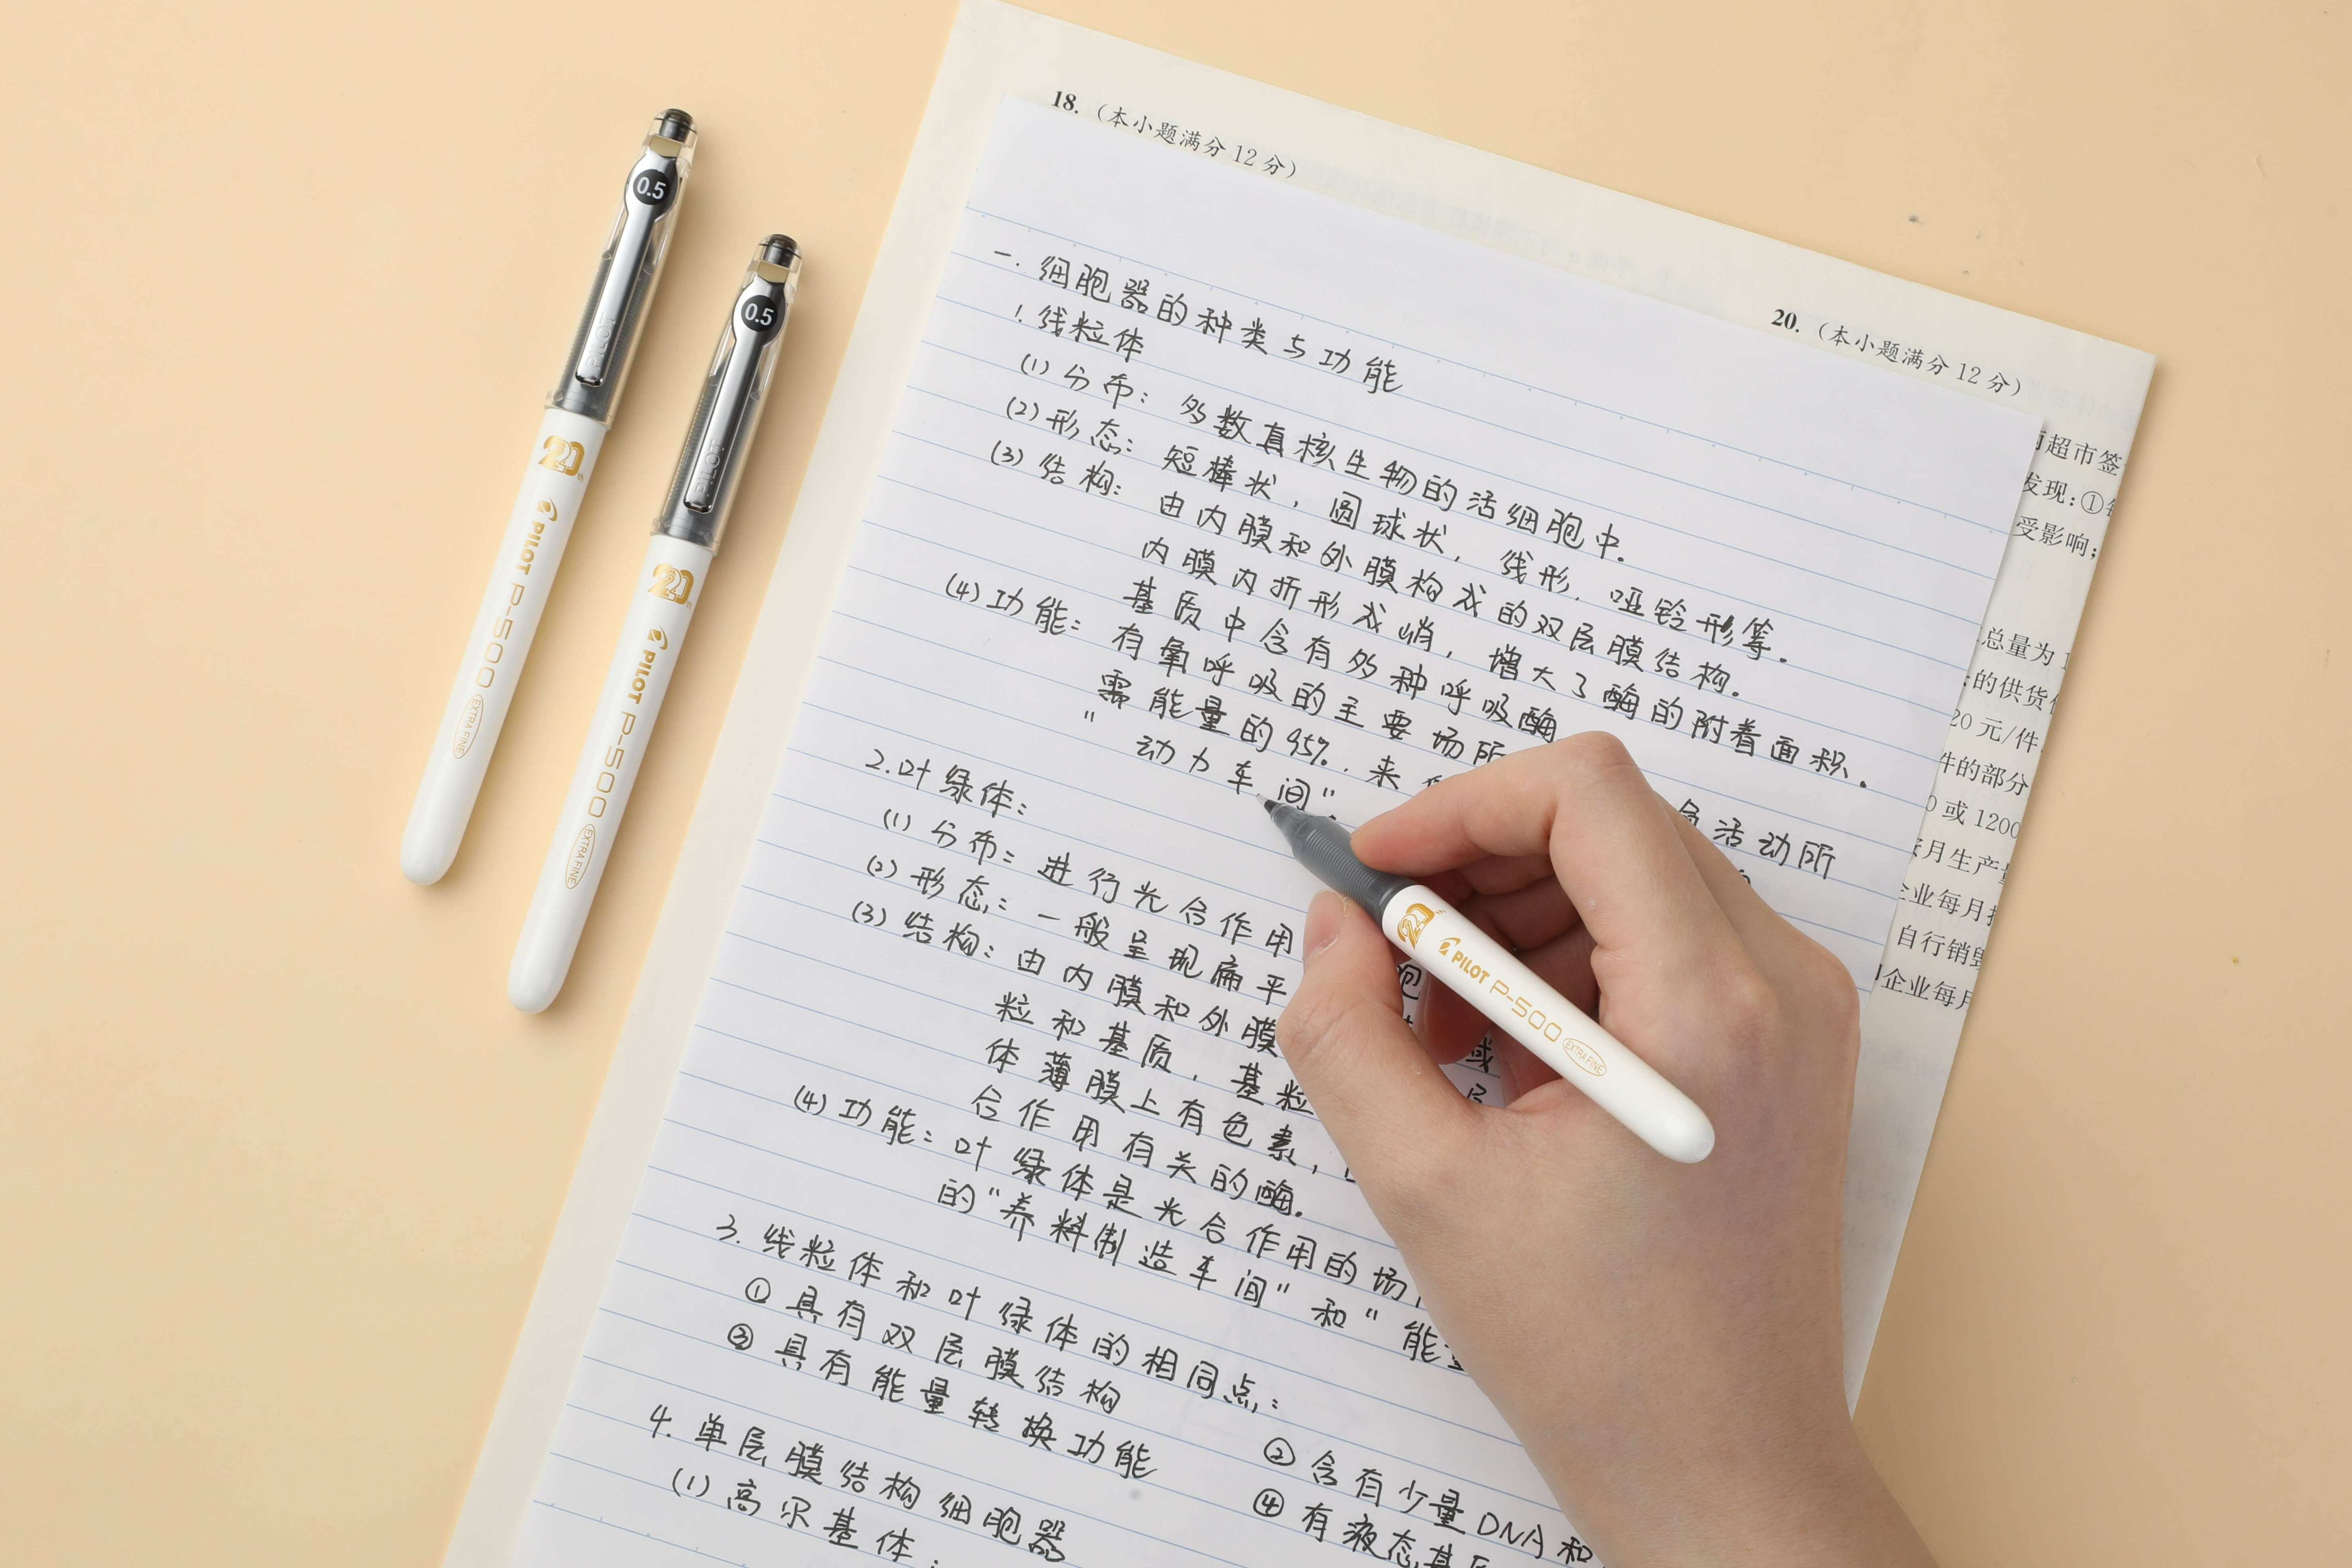 0.5
PILOT
20th
PILOT P-500 EXTRA FINE
0.5
PILOT
20th
PILOT P-500 EXTRA FINE
18. (本小题满分 12 分)
20. (本小题满分 12 分)
超市签
发现:①
受影响;
总量为 1
的供货
20 元/件
件的部分
0 或 1200
月生产量
企业每月
自行销
企业每月
一. 细胞器的种类与功能
1. 线粒体
(1) 分布: 多数真核生物的活细胞中.
(2) 形态: 短棒状, 圆球状, 线形, 哑铃形等.
(3) 结构: 由内膜和外膜构成的双层膜结构.
内膜内折形成嵴, 增大了酶的附着面积.
基质中含有多种呼吸酶
(4) 功能: 有氧呼吸的主要场所 活动所
需能量的95%. 来
"动力车间".
2. 叶绿体:
(1) 分布: 进行光合作用
(2) 形态: 一般呈现扁平
(3) 结构: 由内膜和外膜
粒和基质, 基粒
体薄膜上有色素,
合作用有关的酶.
(4) 功能: 叶绿体是光合作用的场
的"养料制造车间"和"能量
3. 线粒体和叶绿体的相同点:
① 具有双层膜结构 ② 含有少量DNA和
③ 具有能量转换功能 ④ 有液态基
4. 单层膜结构细胞器
(1) 高尔基体:
20th
PILOT P-500 EXTRA FINE